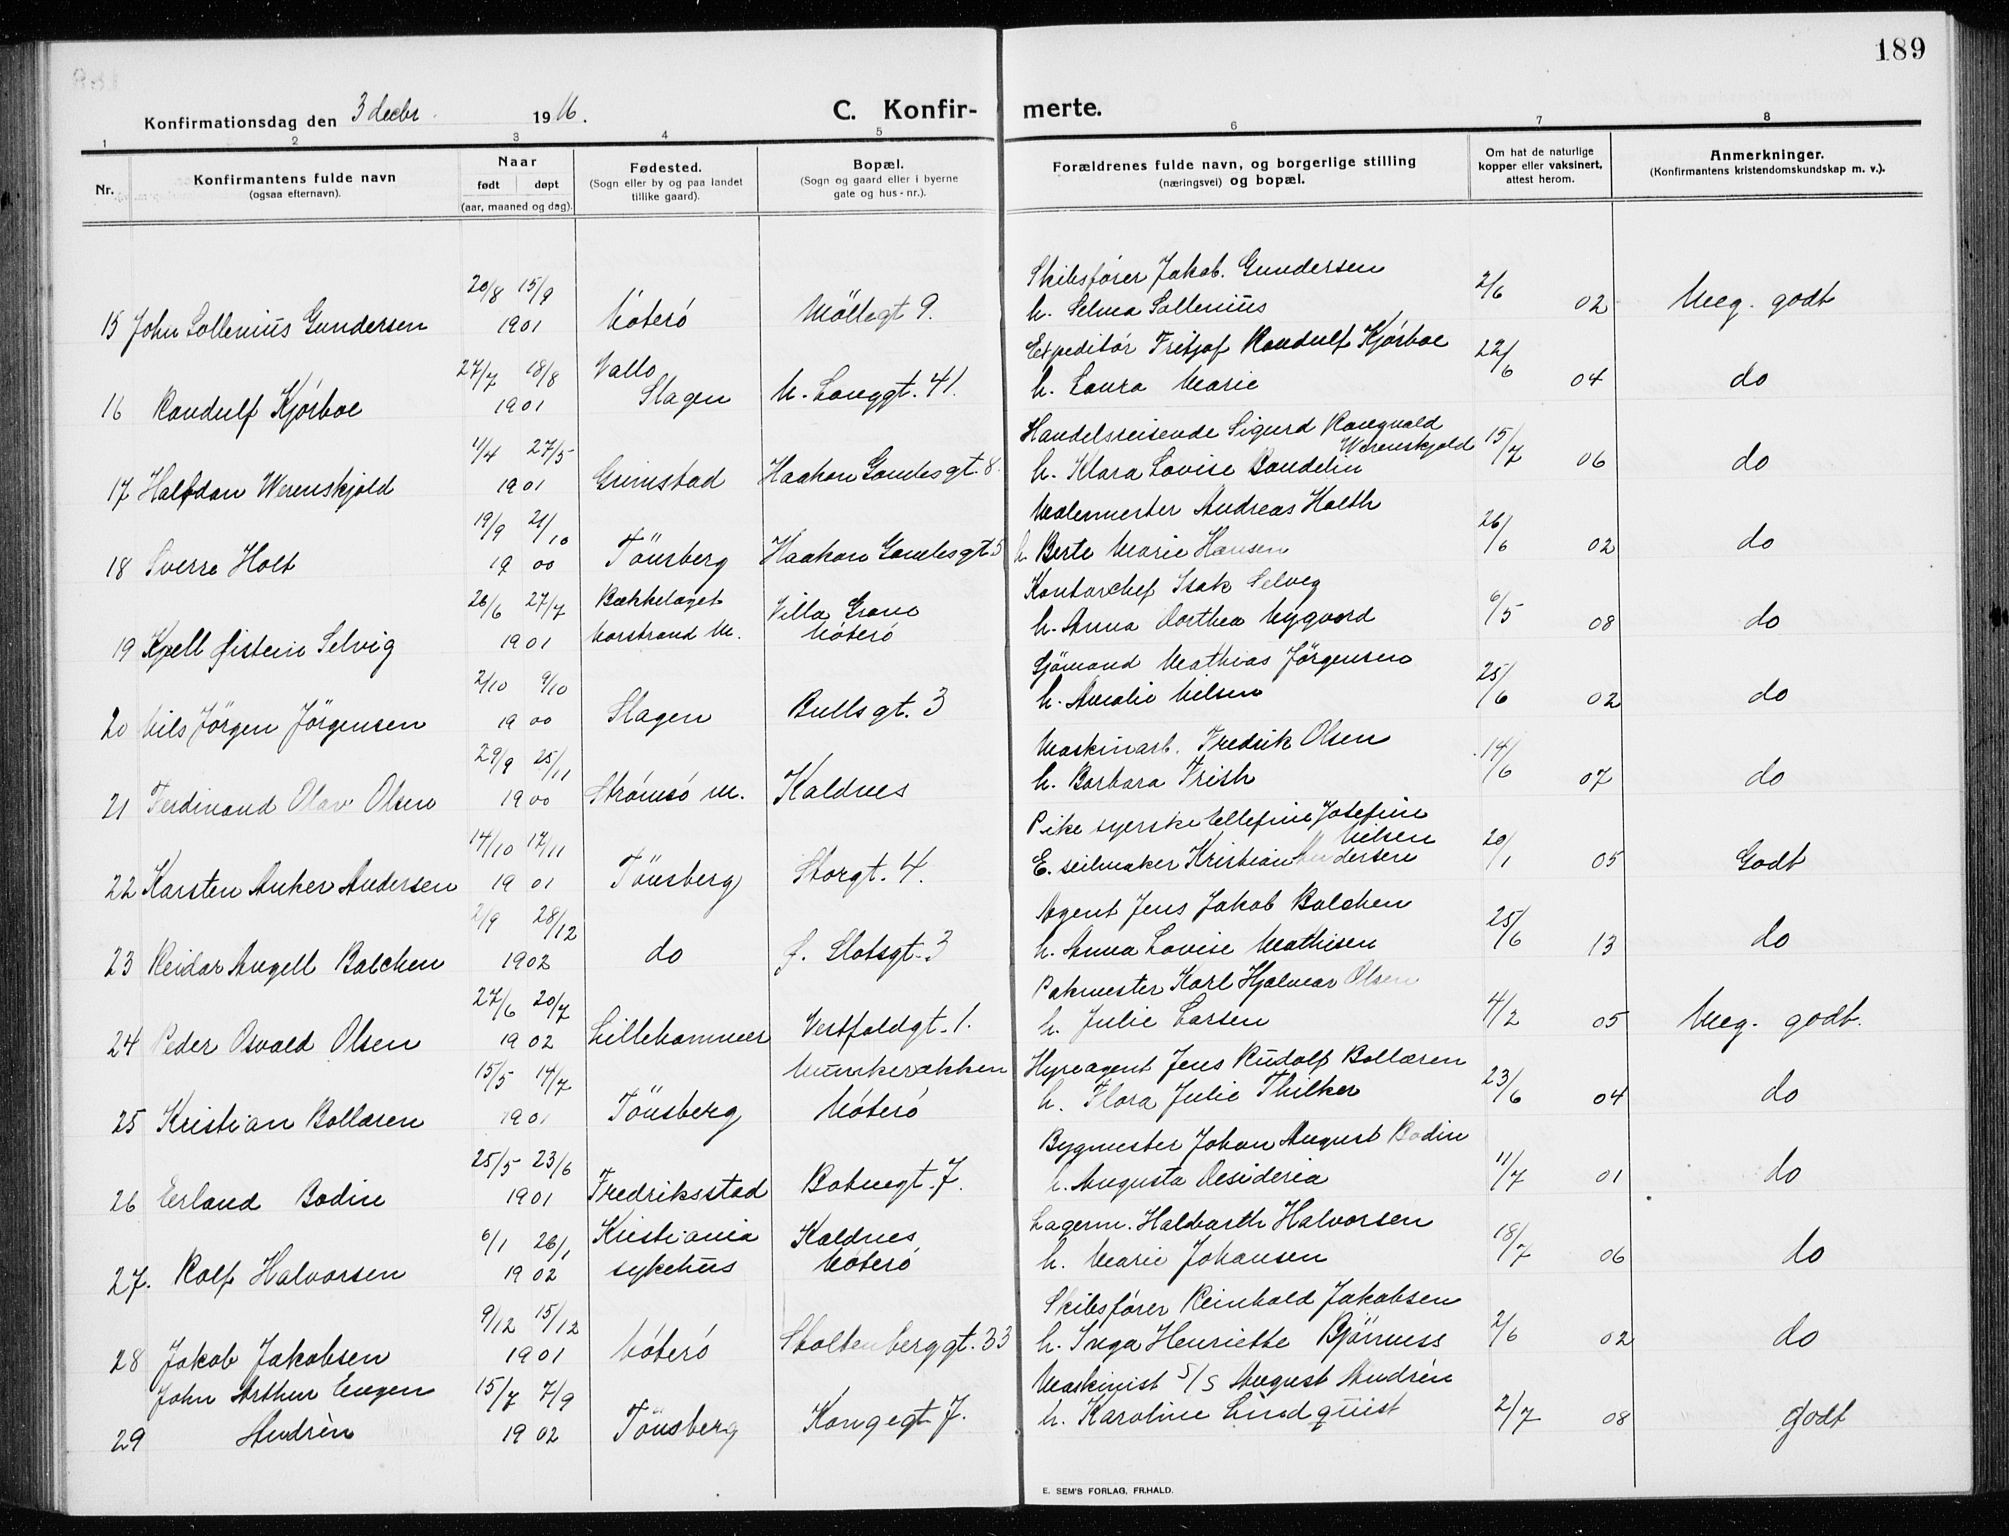 189
Konfirmationsdag den 3 decbr. 1916.
C. Konfir- merte.
1 2 3 4 5 6 7 8
Nr.
Konfirmantens fulde navn
(ogsaa efternavn).
Naar
født døpt
(aar, maaned og dag).
Fødested.
(Sogn eller by og paa landet
tillike gaard).
Bopæl.
(Sogn og gaard eller i byerne
gate og hus-nr.).
Forældrenes fulde navn, og borgerlige stilling
(næringsvei) og bopæl.
Om hat de naturlige
kopper eller vaksinert,
attest herom.
Anmerkninger.
(Konfirmantens kristendomskundskap m. v.).
20/8 15/9 Skibsfører Jakob Gundersen
15 John Sollenius Gundersen 1901 Nøterø Möllegt 9. h. Selma Sollenius 2/6 02 Meg. godt
27/7 18/8 Vallø Expeditör Fritjof Randulf Kjørboe
16 Randulf Kjørboe 1901 Slagen N. Langgt. 41. h. Laura Marie 22/6 04 do
1/4 27/5 Handelsreisende Sigurd Rangvald Werenskjold
17 Halfdan Werenskjold 1901 Grimstad Haakon Gamlesgt. 8. h. Klara Lovise Bandelin 15/7 06 do
19/9 21/10 Malermester Andreas Holth
18 Sverre Holt 1900 Tönsberg Haakon Gamlesgt 5 h. Berte Marie Hansen 26/6 02 do
26/6 27/7 Bækkelaget Villa Grane Kontorchef Isak Selvig
19 Kjell Øistein Selvig 1901 Norstrand M. Nøterø h. Anna Dorthea Nygaard 6/5 08 do
2/10 9/10 Sjømand Mathias Jörgensen
20 Nils Jörgen Jörgensen 1900 Slagen Bullsgt. 3 h. Amalie Nilsen 25/6 02 do
29/9 25/11 Maskinarb. Fredrik Olsen
21 Ferdinand Olav Olsen 1900 Strömsö m. Kaldnes h. Barbara Frish 14/6 07 do
14/10 17/11 Pike syerske Ellefine Josefine Nilsen
22 Karsten Anker Andersen 1901 Tönsberg Storgt. 4. E. seilmaker Kristian Andersen 20/1 05 Godt
2/9 28/12 Agent Jens Jakob Balchen
23 Reidar Angell Balchen 1902 do f. Slotsgt. 3 h. Anna Lovise Mathisen 25/6 13 do
27/6 20/7 Pakmester Karl Hjalmar Olsen
24 Peder Osvald Olsen 1902 Lillehammer Vestfoldgt. 1. h. Julie Larsen 4/2 05 Meg. godt.
15/5 14/7 Munkerækken Hyreagent Jens Rudolf Bollæren
25 Kristian Bollæren 1901 Tönsberg Nøterø h. Flora Julie Thilker 23/6 04 do
25/5 23/6 Bygmester Johan August Bodin
26 Erland Bodin 1901 Fredriksstad Batnegt. 7. h. Augusta Desideria 11/7 01 do
6/1 26/1 Kristiania Kaldnes Lagerm. Haldbarth Halvorsen
27. Rolf Halvorsen 1902 sykehus Nøterø h. Marie Johansen 18/7 06 do
9/12 15/12 Skibsfører Reinhold Jakobsen
28 Jakob Jakobsen 1901 Nøterø Stoltenberggt. 33 h. Inga Henriette Bjönness 2/6 02 do
John Arthur Eugen 15/7 7/9 Maskinist S/S August Andrèn
29 Andrèn 1902 Tönsberg Kongegt 7. h. Karoline Lindquist 2/7 08 Godt
E. SEM'S FORLAG, FR.HALD.